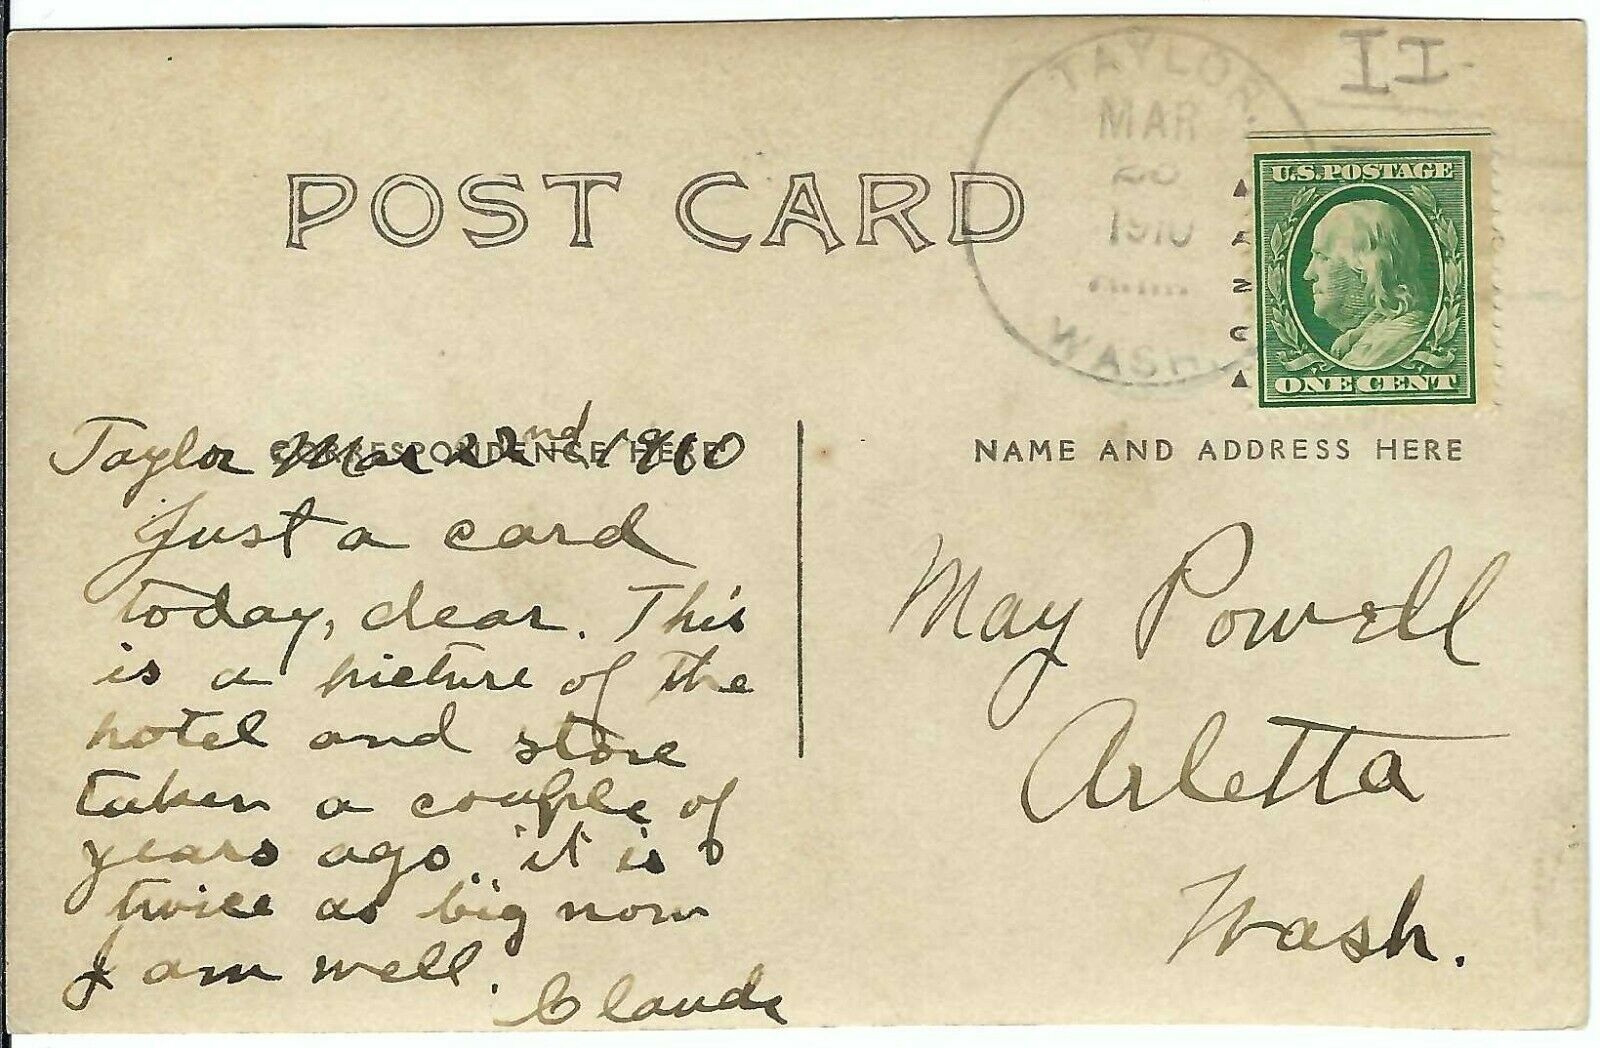 TAYLOR.
MAR
1910
WASH.
II
U.S. POSTAGE
ONE CENT
POST CARD
CORRESPONDENCE HERE
NAME AND ADDRESS HERE
Taylor Mar 22nd 1910
Just a card
today, dear. This
is a picture of the
hotel and store
taken a couple of
years ago. it is
twice as big now
I am well.
Claude
May Powell
Arletta
Wash.